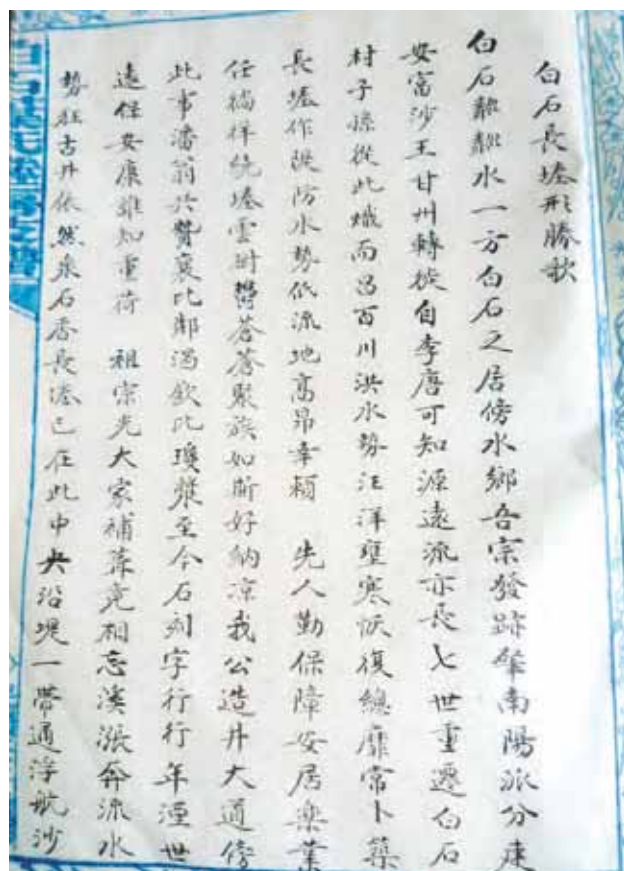 白石長堘形勝歌
白石粼粼水一方白石之居傍水鄉吾宗發跡肇南陽派分建
安富沙王甘州轉徙自李唐可知源遠流亦長七世重遷白石
村子孫從此熾而昌百川洪水勢汪洋壅塞恢復總靡常卜築
長堘作隄防水勢低流地高昂幸賴 先人勤保障安居樂業
任徜徉繞堘雲樹鬱蒼蒼聚族如斯好納凉我公造井大道傍
此事潘翁共贊襄比鄰渴飲比瓊漿至今石刻字行行年湮世
遠任安康誰知重荷 祖宗光大家補葺竟相忘溪漲奔流水
勢狂古井依然泉石香長堘已在此中央沿堤一帶通浮航沙